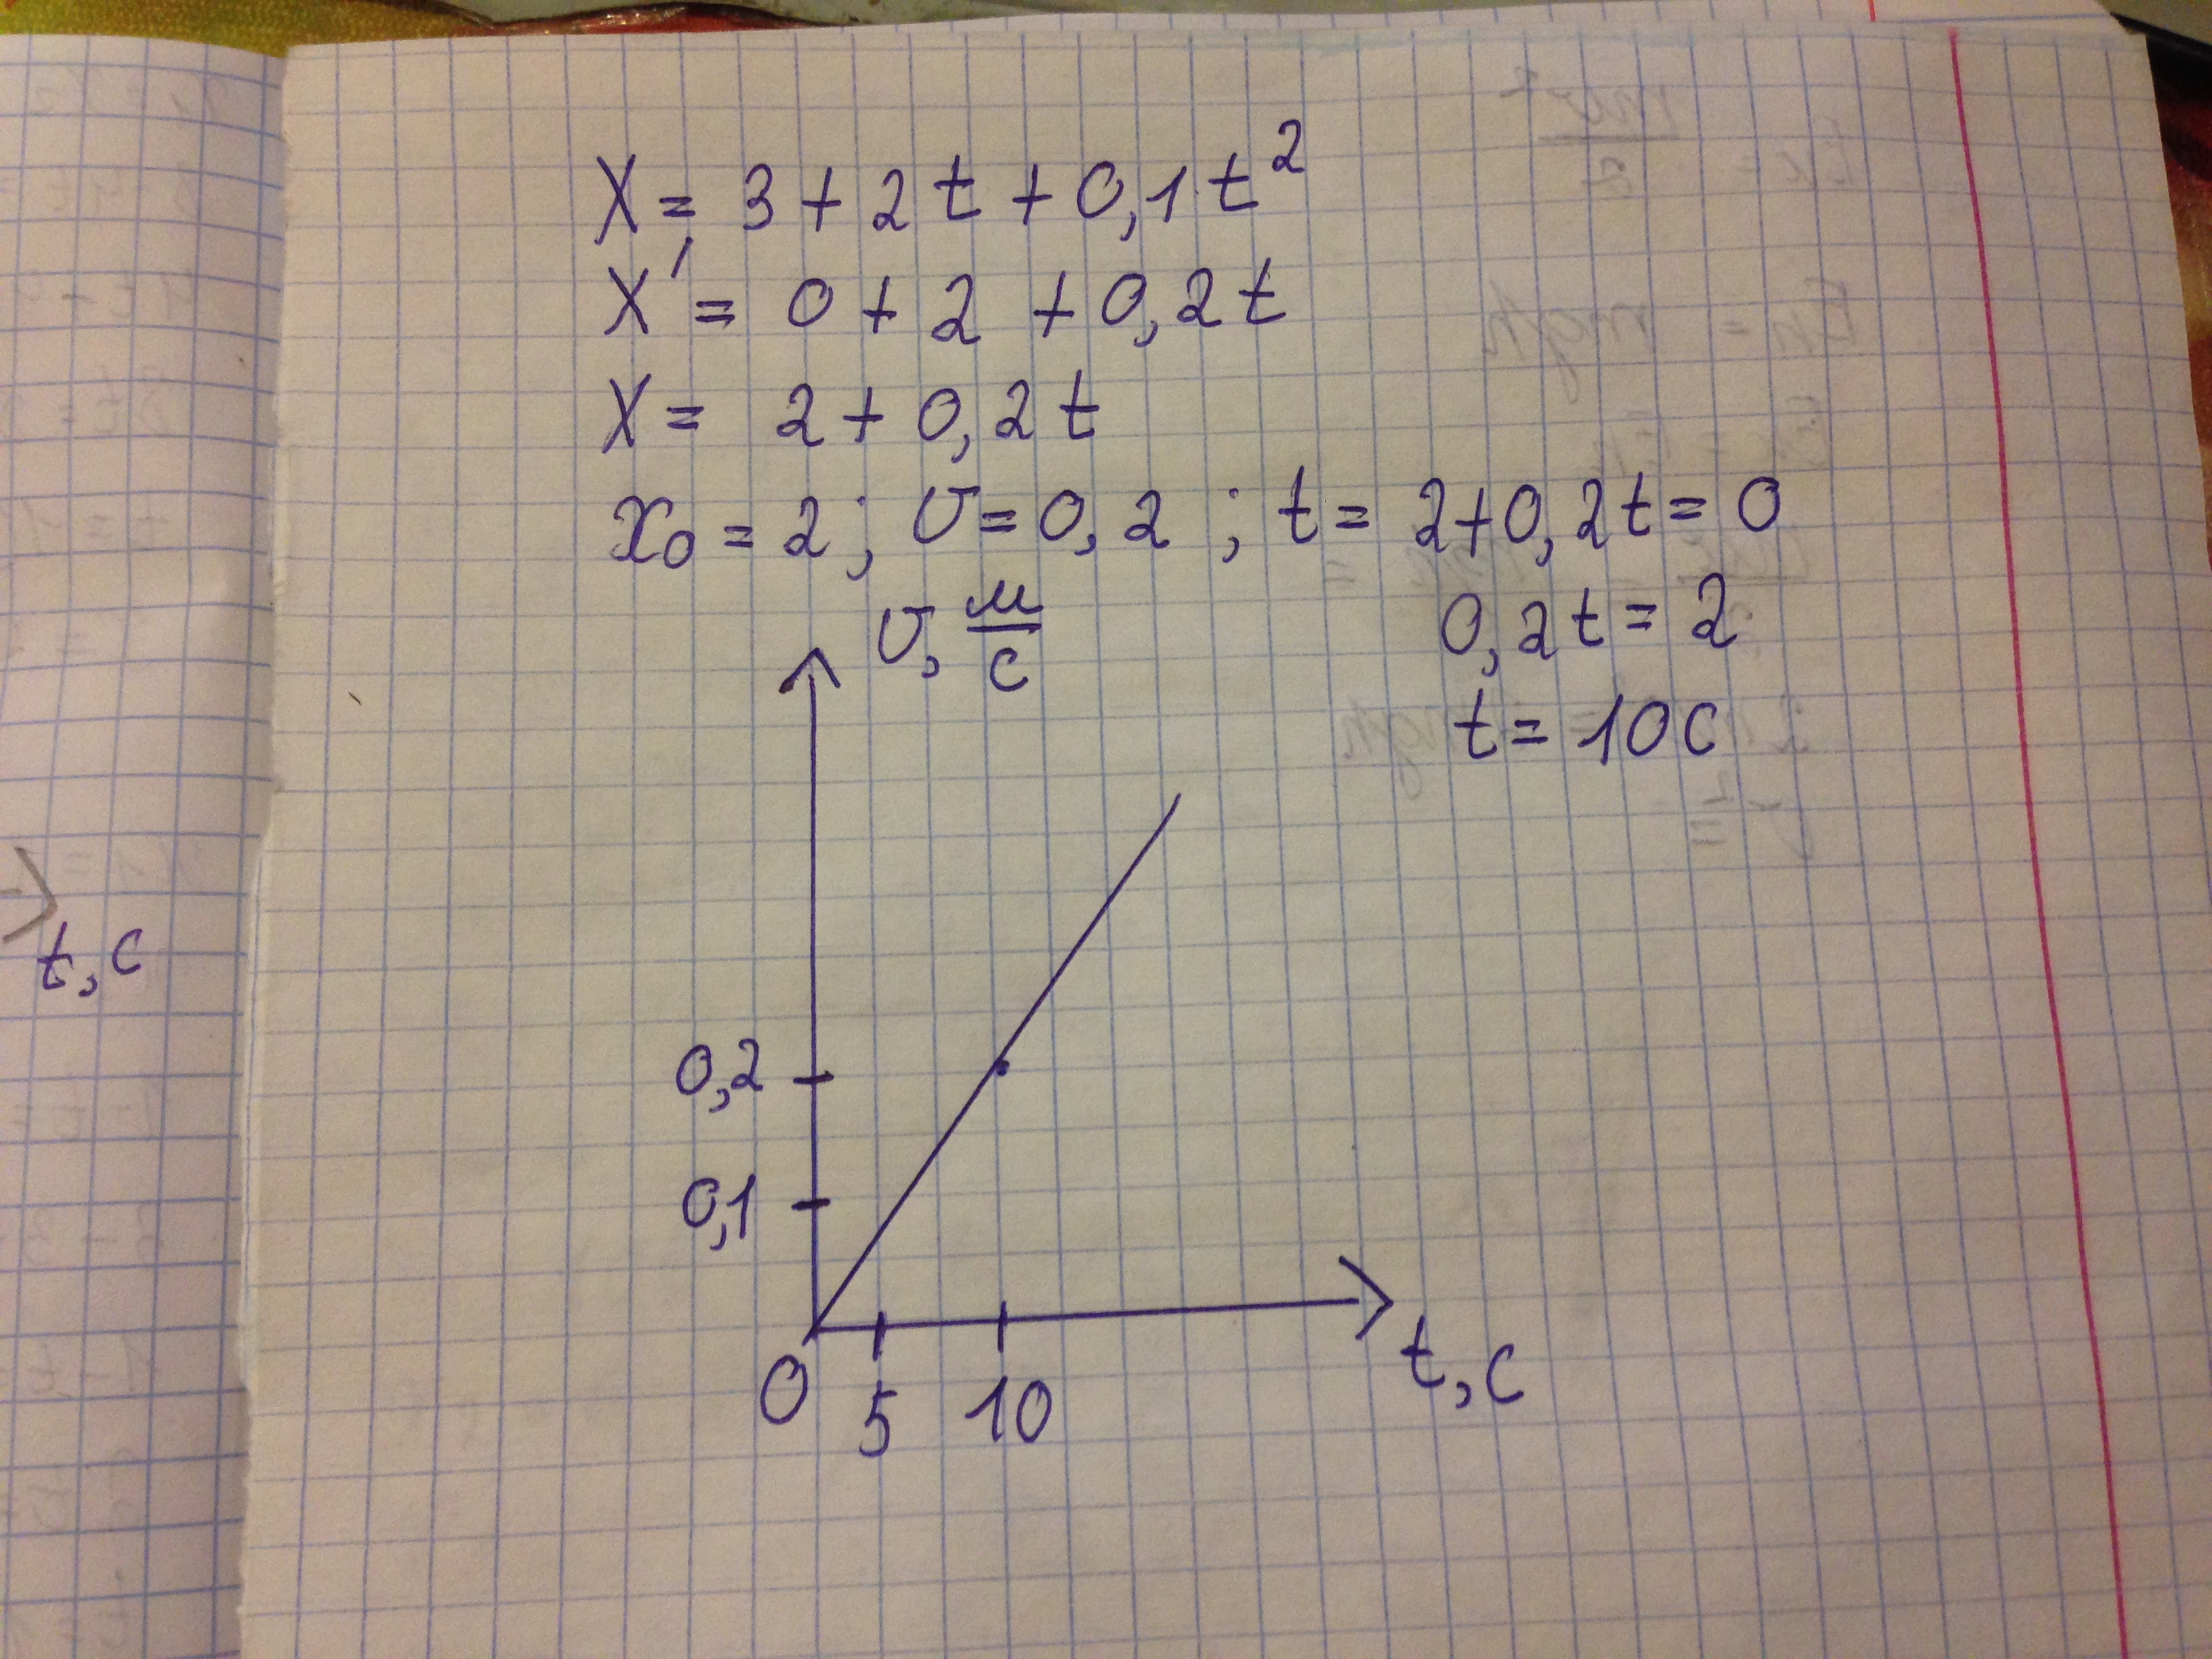 X = 3 + 2t + 0,1t²
X' = 0 + 2 + 0,2t
X = 2 + 0,2t
x₀ = 2; υ = 0,2; t = 2+0,2t = 0
0,2t = 2
t = 10 c
υ, м/с
0,2
0,1
0
5
10
t, c
t, c